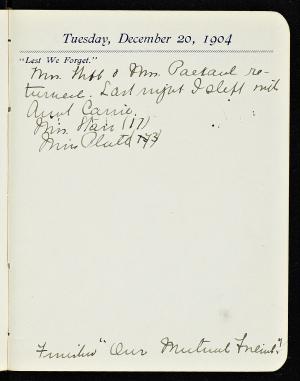 Tuesday, December 20, 1904
"Lest We Forget."
Mrs. Webb & Mrs. Packard re-
turned. Last night I slept with
Aunt Carrie.
Miss Starr (17)
Miss Platt
Finished "Our Mutual Friend."